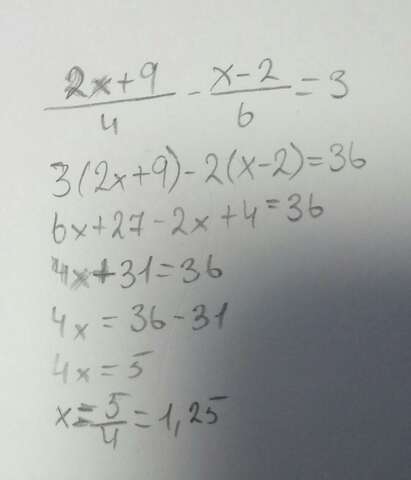 (2x+9)/4 - (x-2)/6 = 3
3(2x+9)-2(x-2)=36
6x+27-2x+4=36
4x+31=36
4x=36-31
4x=5
x=5/4=1,25